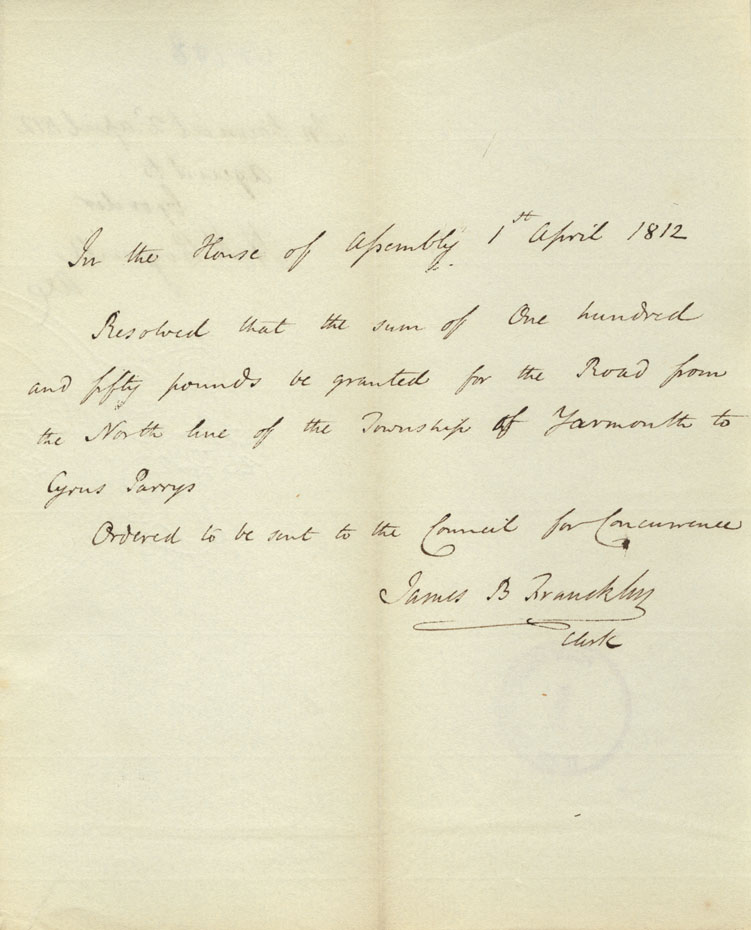 In the House of Assembly 1st April 1812
Resolved that the sum of One hundred
and fifty pounds be granted for the Road from
the North line of the Township of Yarmouth to
Cyrus Parrys
Ordered to be sent to the Council for Concurrence
James B Franckly
Clerk